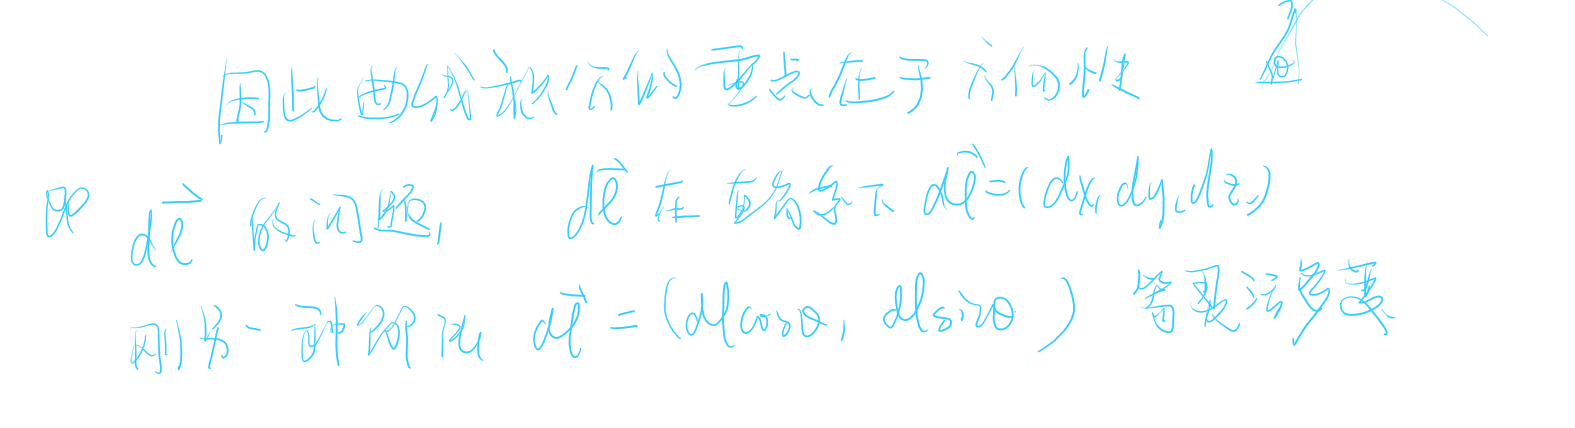 因此曲线积分的重点在于方向性
θ
即 d\vec{l} 的问题, d\vec{l} 在直角系下 d\vec{l}=(dx,dy,dz)
则另一种 d\vec{l} = (dlcosθ, dlsinθ) 需要